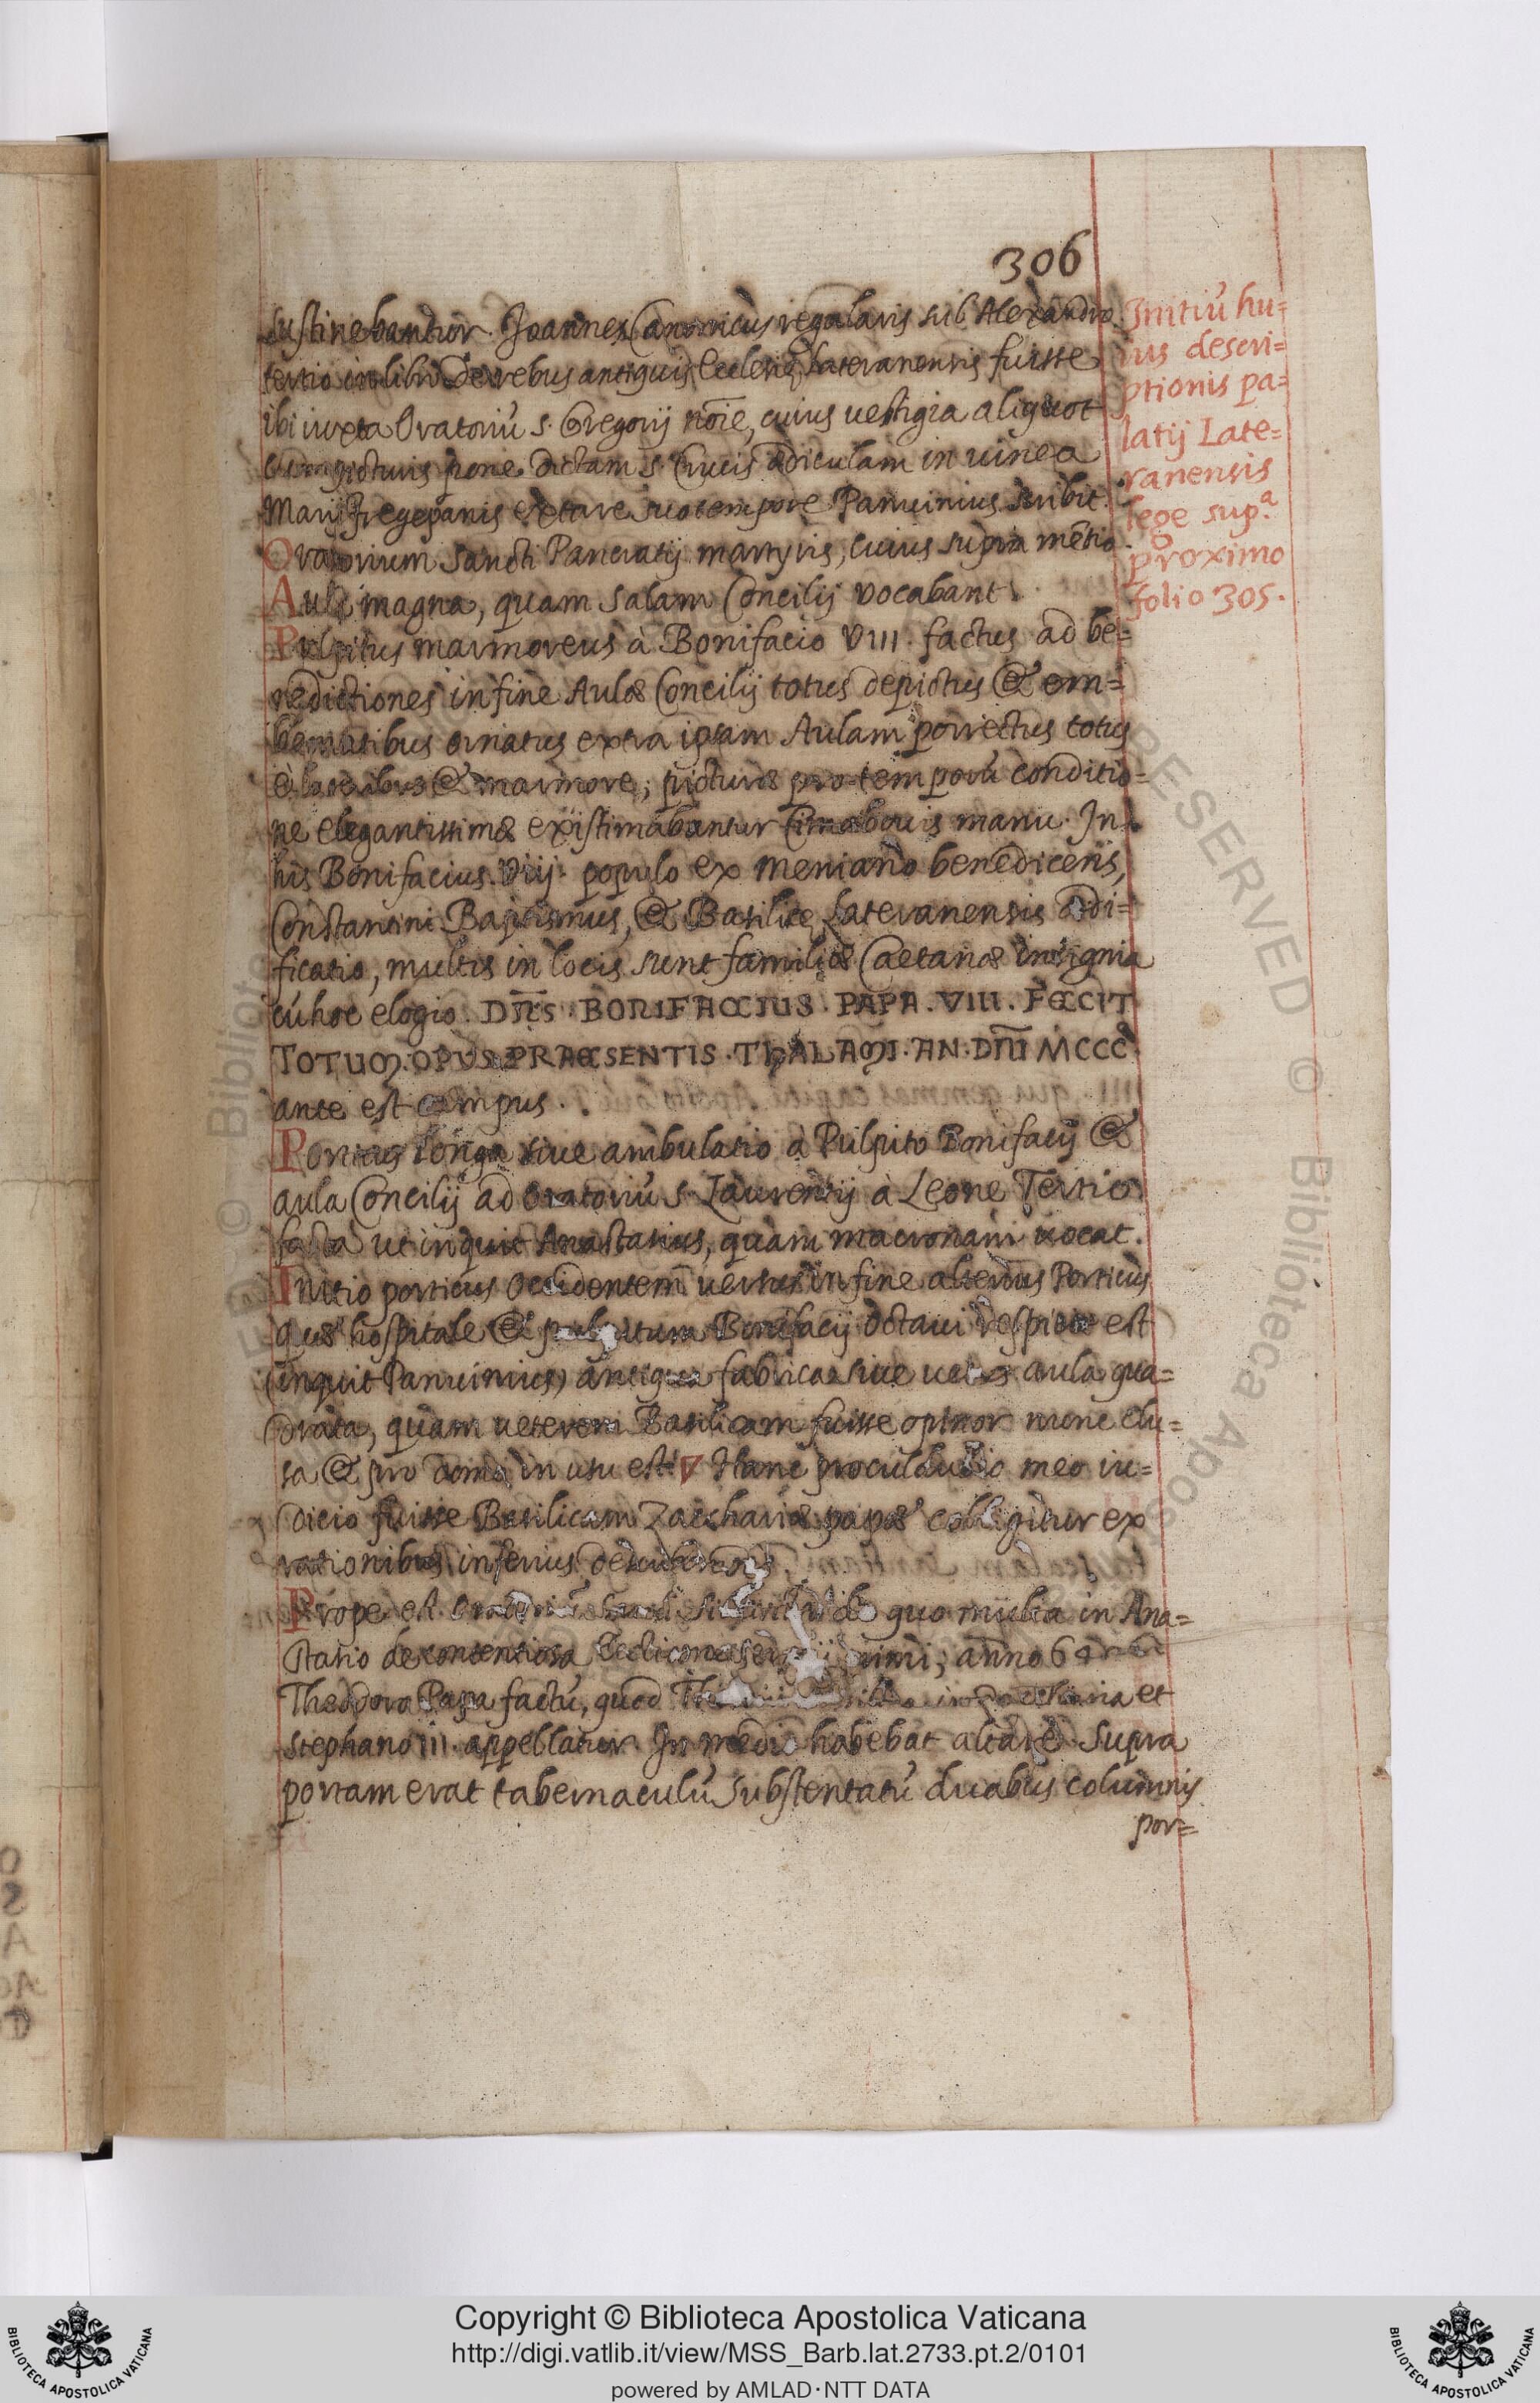 306
sustinebantur. Joannes Canonicus regularis sub Alexandro
tertio in libro de rebus antiquis Ecclesię Lateranensis fuisse
ibi iuxta Oratoriũ S. Gregorij nõie, cuius uestigia aliquot
cum picturis pone dictam S. Crucis ædiculam in uinea
Marij Fregepanis extare suo tempore Panuinius scribit.
Oratorium Sancti Pancratij martyris, cuius supra mẽtio.
Aula magna, quam Salam Concilij vocabant.
Pulpitus marmoreus à Bonifacio VIII. factus ad be=
nedictiones in fine Aulæ Concilij totus depictus & em=
blematibus ornatus extra ipsam Aulam porrectus totus
è lateribus & marmore; picturæ pro temporũ conditio=
ne elegantissimæ existimabantur Cimabouis manu. In
his Bonifacius Viij. populo ex meniano benedicens,
Constantini Baptismus, & Basilicę Lateranensis ædi=
ficatio, multis in locis sunt familiæ Caetanæ insignia
cũ hoc elogio. DÑS. BONIFACIUS. PAPA. VIII. FECIT
TOTUM. OPVS. PRAESENTIS. THALAMI. AN. DÑI MCCC
ante est campus.
Porticus longa siue ambulatio à Pulpito Bonifacij &
aula Concilij ad Oratoriũ S. Laurentij à Leone Tertio
facta ut inquit Anastasius, quam macronam uocat.
Initio porticus Occidentem uersus in fine alterius Porticus
quæ hospitale & pulpitum Bonifacij Octaui respicit est
(inquit Panuinius) antiqua fabrica siue uetus aula qua=
drata, quam ueterem Basilicam fuisse opinor nunc clu=
sa & pro domo in usu est. Hanc procul dubio meo iu=
dicio fuisse Basilicam Zacchariæ papæ colligitur ex
rationibus inferius
Prope est quo multa in Ana=
stasio de contentiosa anno 64
Theodoro Papa factũ, quod et
Stephano III. appellatur. In medio habebat altare. Supra
portam erat tabernaculũ substentatũ duabus columnis
por=
Initiũ hu=
ius descri=
ptionis pa=
latij Late=
ranensis
lege sup.ª
proximo
folio 305.
Copyright © Biblioteca Apostolica Vaticana
http://digi.vatlib.it/view/MSS_Barb.lat.2733.pt.2/0101
powered by AMLAD·NTT DATA
BIBLIOTECA APOSTOLICA VATICANA
BIBLIOTECA APOSTOLICA VATICANA